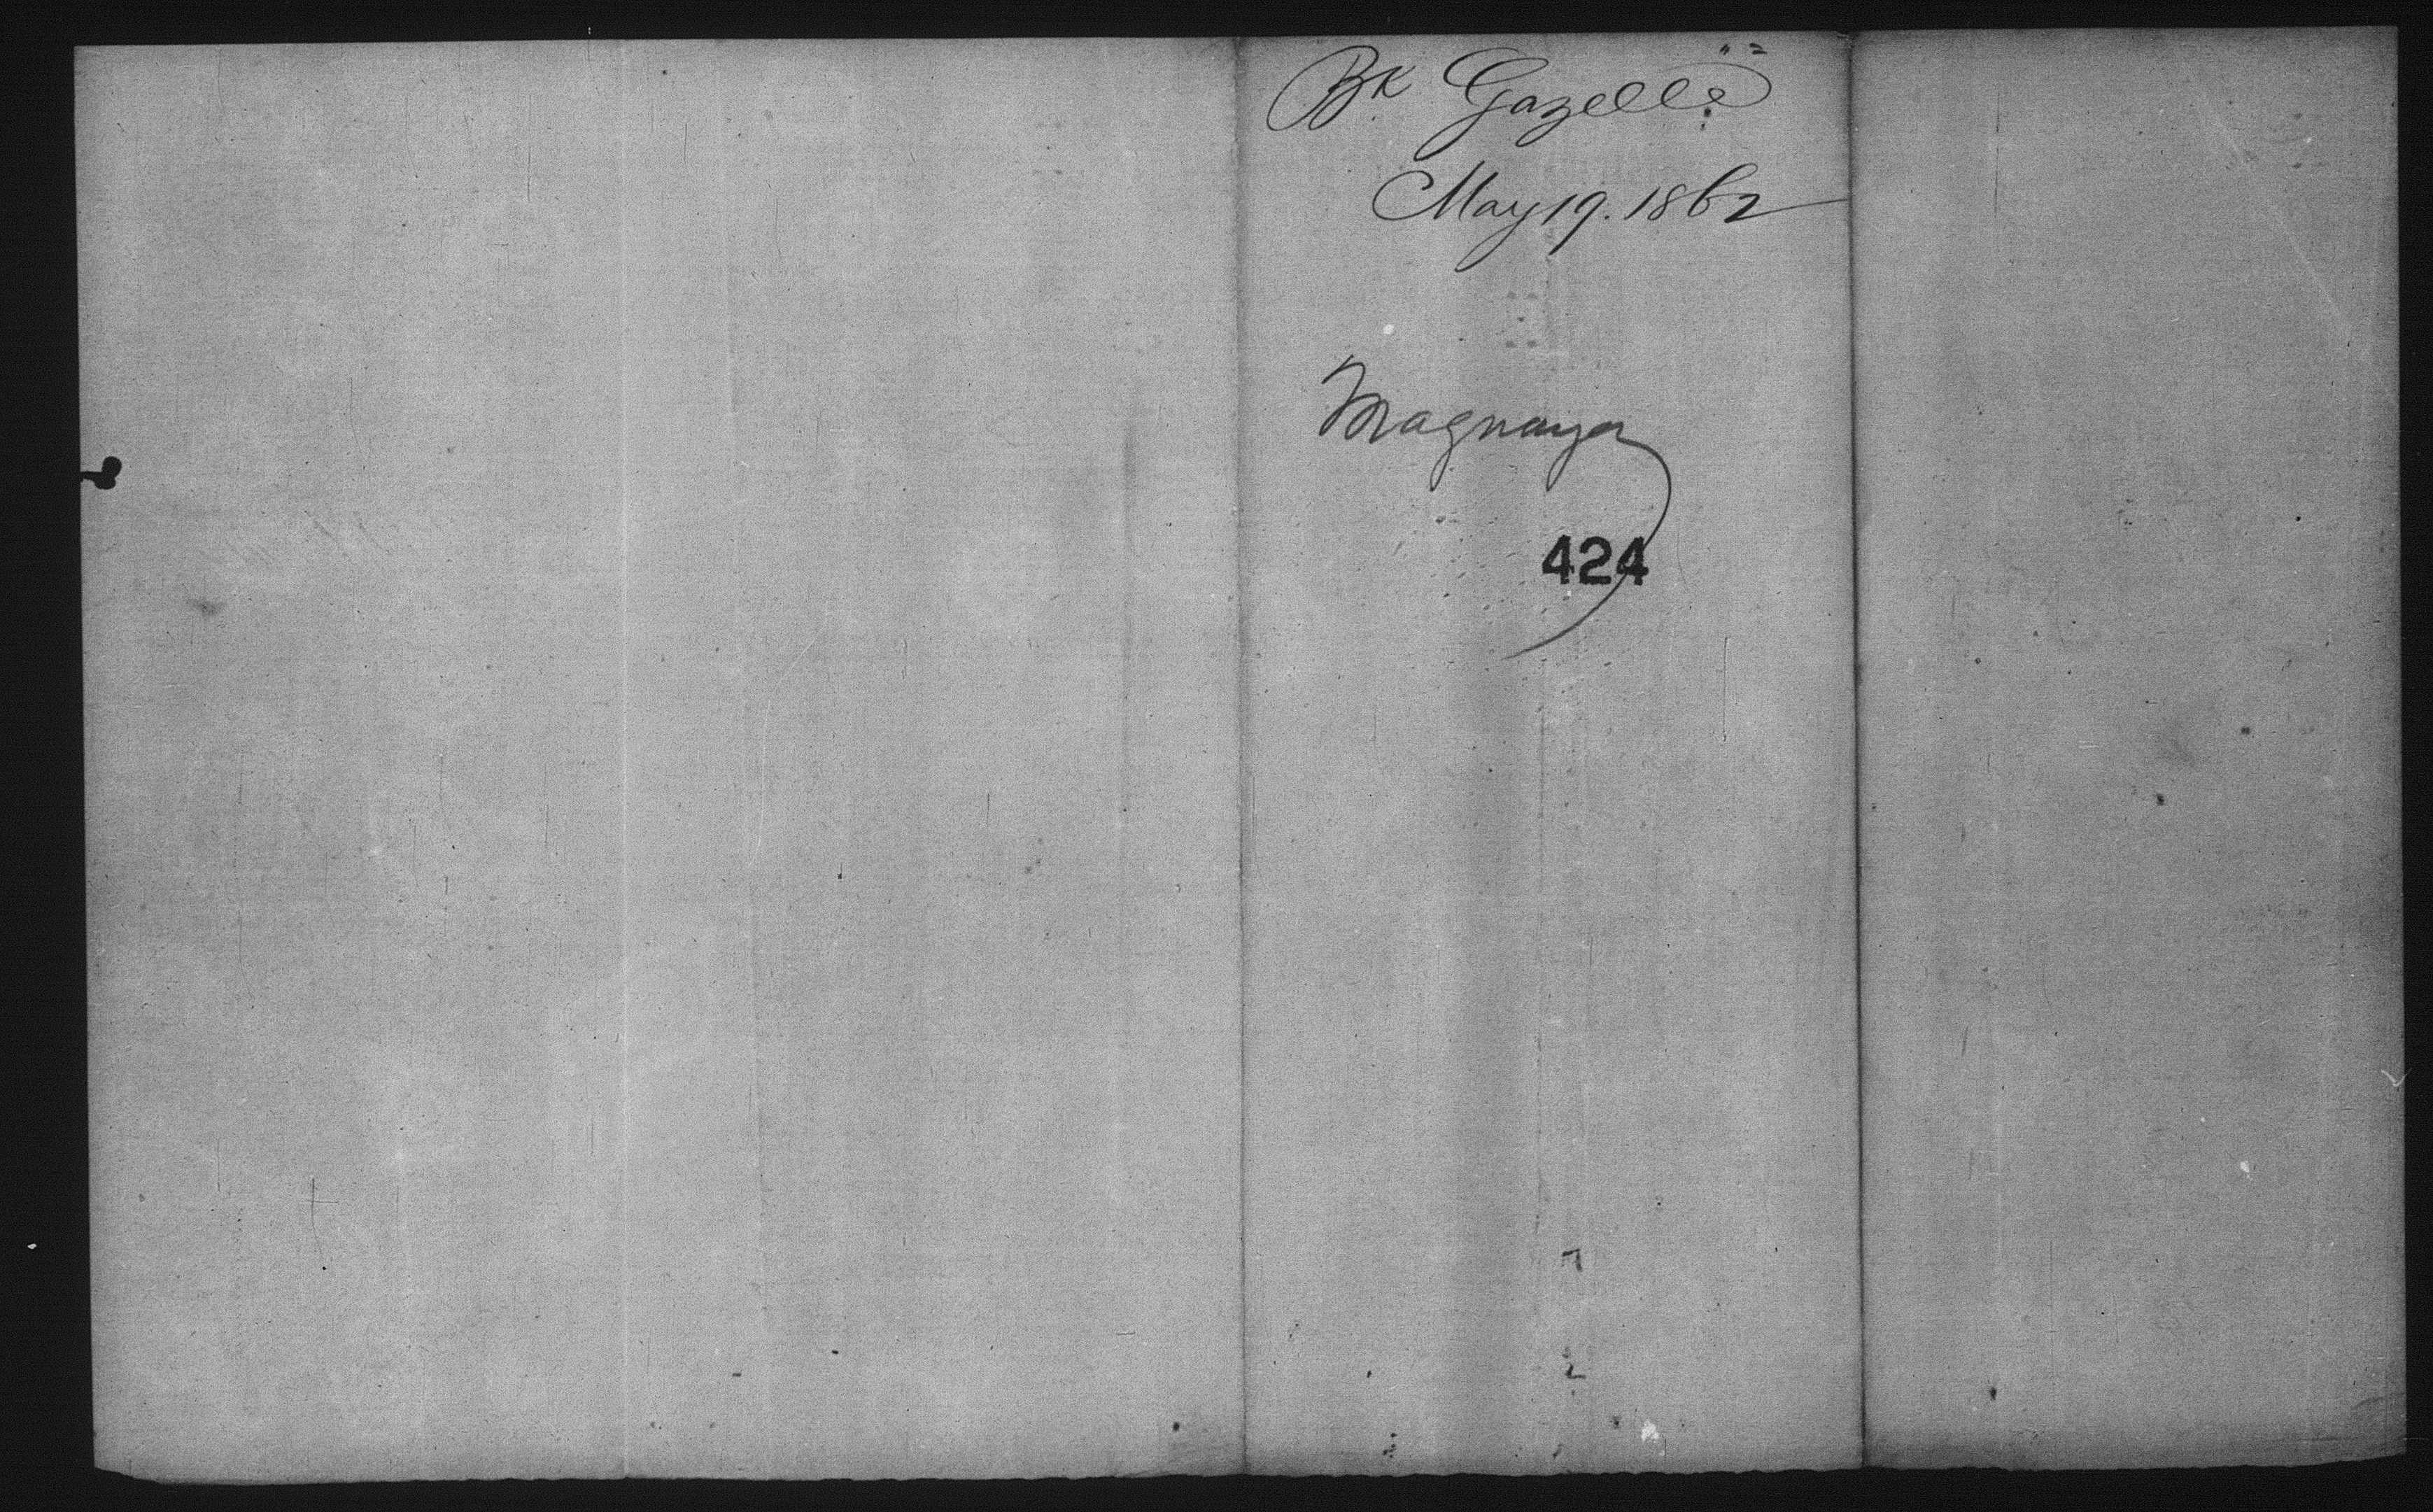 Bk Gazelle
May 19. 1862
Magnaya
424